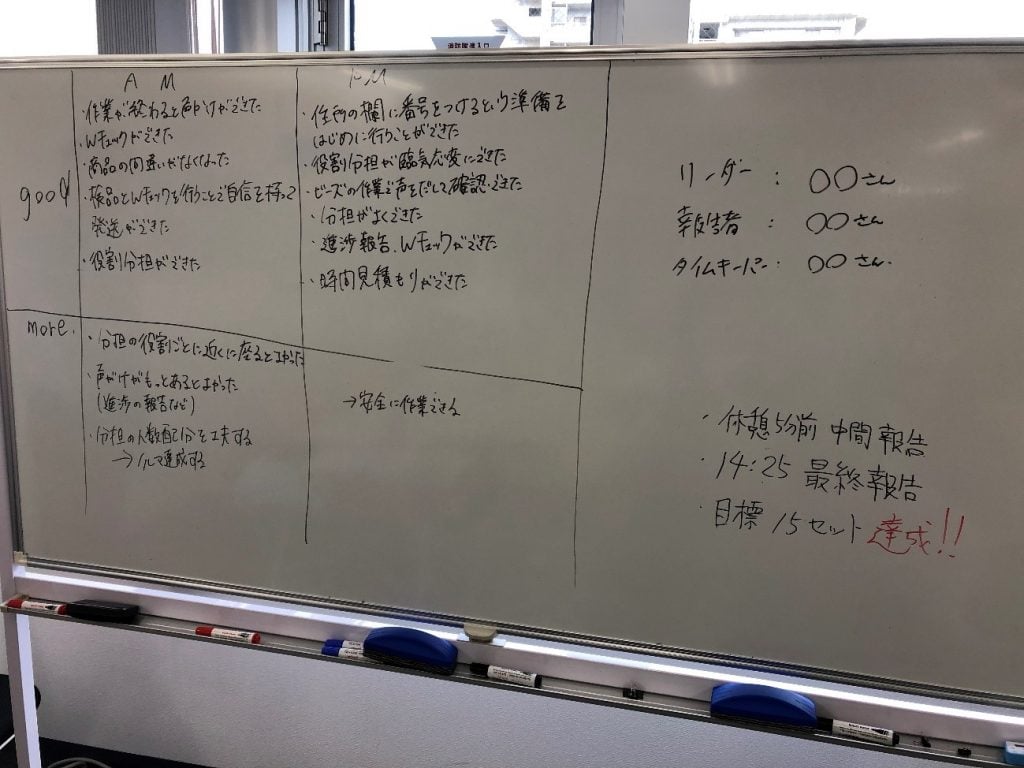 消防隊進入口
AM
PM
good
・作業が終わると声かけができた
・Wチェックができた
・商品の間違いがなくなった
・検品とWチェックを行うことで自信を持って
発送ができた
・役割分担ができた
・住所の欄に番号をつけるという準備を
はじめに行うことができた
・役割分担が臨気応変にできた
・ビーズの作業で声をだして確認できた
・分担がよくできた
・進捗報告、Wチェックができた
・時間見積もりができた
more.
・分担の役割ごとに近くに座るとよかった
・声がけがもっとあるとよかった
(進捗の報告など)
・分担の人数配分を工夫する
→ノルマ達成する
→安全に作業できる
リーダー:○○さん
報告者:○○さん
タイムキーパー:○○さん.
・休憩5分前 中間報告
・14:25 最終報告
・目標 15セット 達成!!